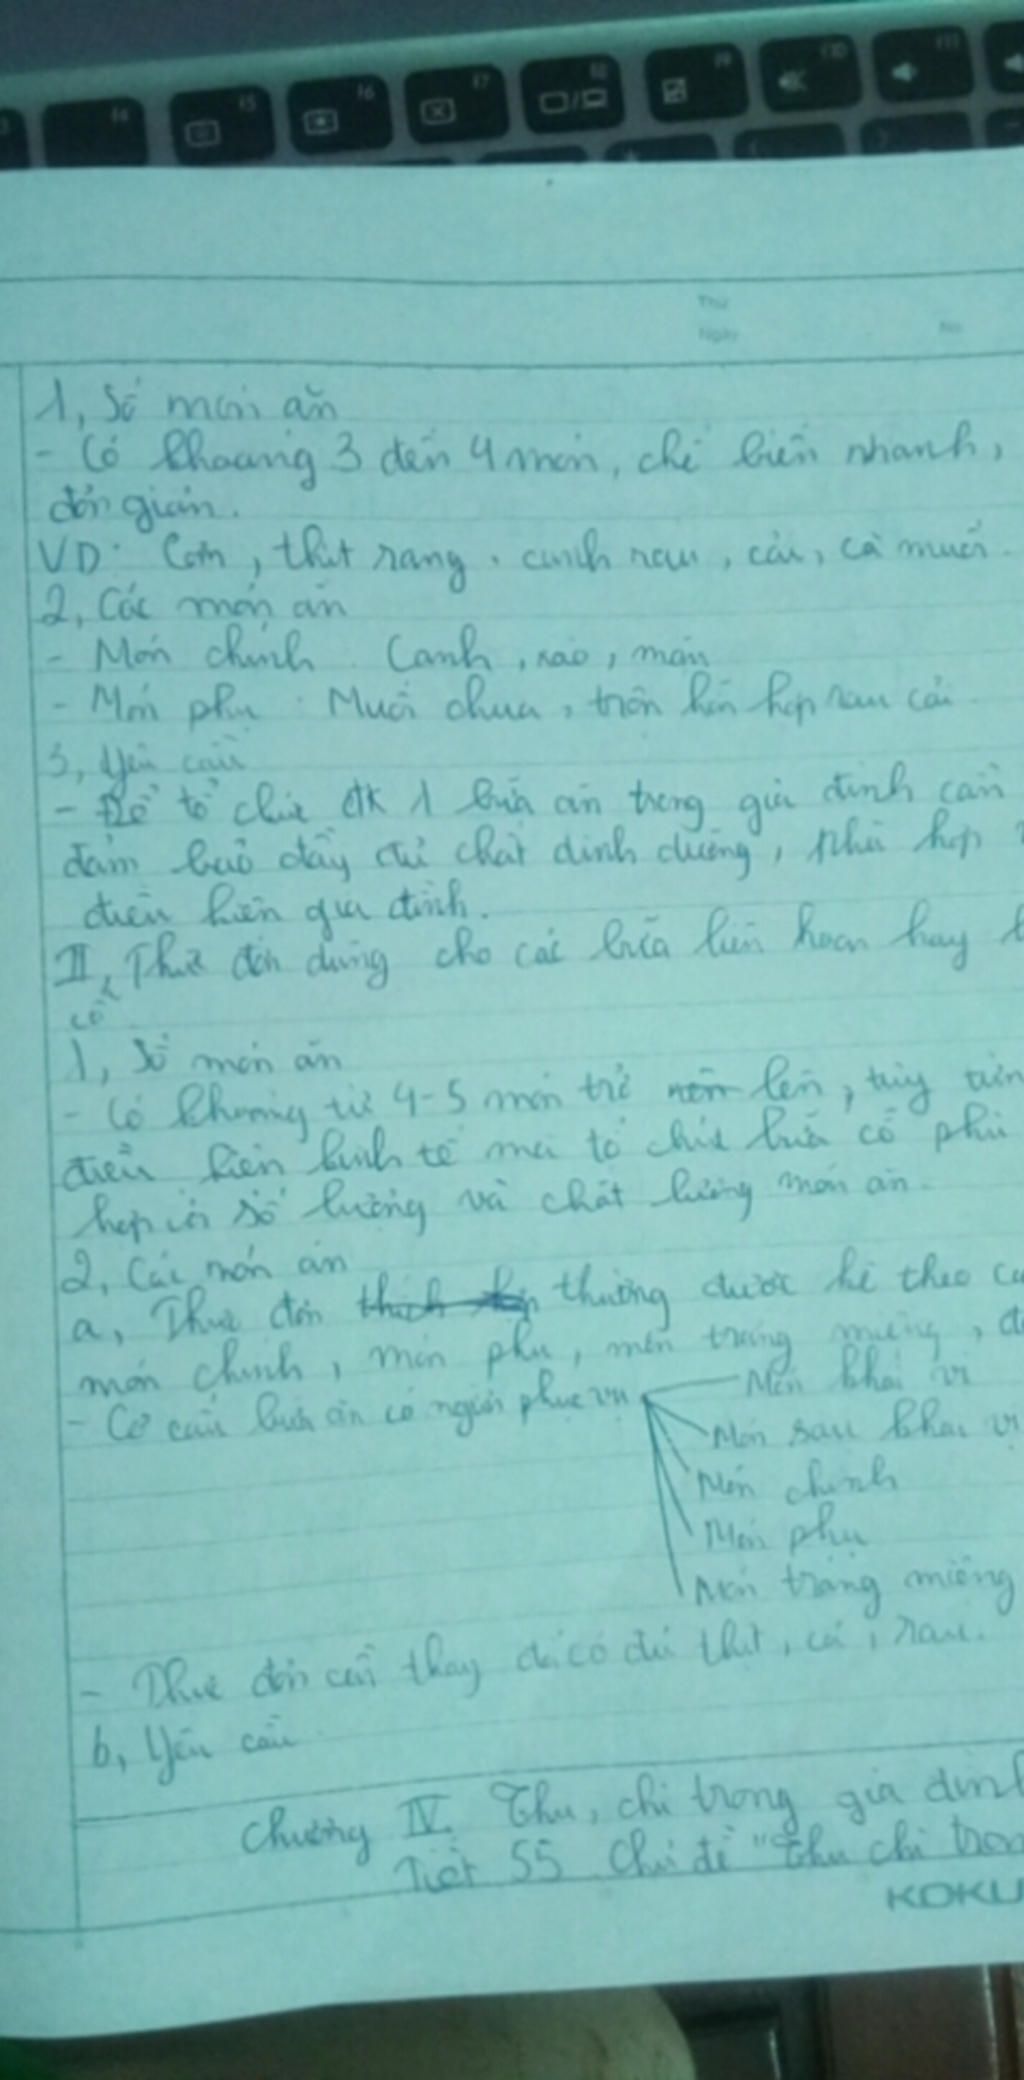 F4 F5 F6 F7 F8 F9 F10 F11
Thứ
Ngày No
1, Số món ăn
- Có khoảng 3 đến 4 món, chế biến nhanh,
đơn giản.
VD: Cơm, thịt rang, canh rau, cải, cà muối
2, Các món ăn
- Món chính Canh, xào, mặn
- Món phụ: Muối chua, trộn hỗn hợp rau cải
3, Yêu cầu
- Để tổ chức đk 1 bữa ăn trong gia đình cần
đảm bảo đầy đủ chất dinh dưỡng, phù hợp
điều kiện gia đình.
II, Thực đơn dùng cho các bữa liên hoan hay
cỗ
1, Số món ăn
- Có khoảng từ 4-5 món trở lên, tùy
điều kiện kinh tế mà tổ chức bữa cỗ phù
hợp với số lượng và chất lượng món ăn.
2, Các món ăn
a, Thực đơn thường được kê theo
món chính, món phụ, món tráng miệng,
- Cơ cấu bữa ăn có người phục vụ Món khai vị
Món sau khai vị
Món chính
Món phụ
Món tráng miệng
- Thực đơn cần thay để có đủ thịt, cá, rau.
b, Yêu cầu
Chương IV. Thu, chi trong gia đình
Tiết 55 Chủ đề "Thu chi
KOKU